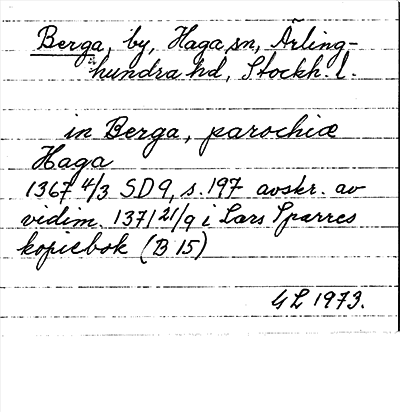 Berga, by, Haga sn, Ärling-
hundra hd, Stockh. l.
in Berga, parochiæ
Haga
1367 4/3 SD 9, s. 197 avskr. av
vidim. 1371 21/9 i Lars Sparres
kopiebok (B 15)
GL 1973.